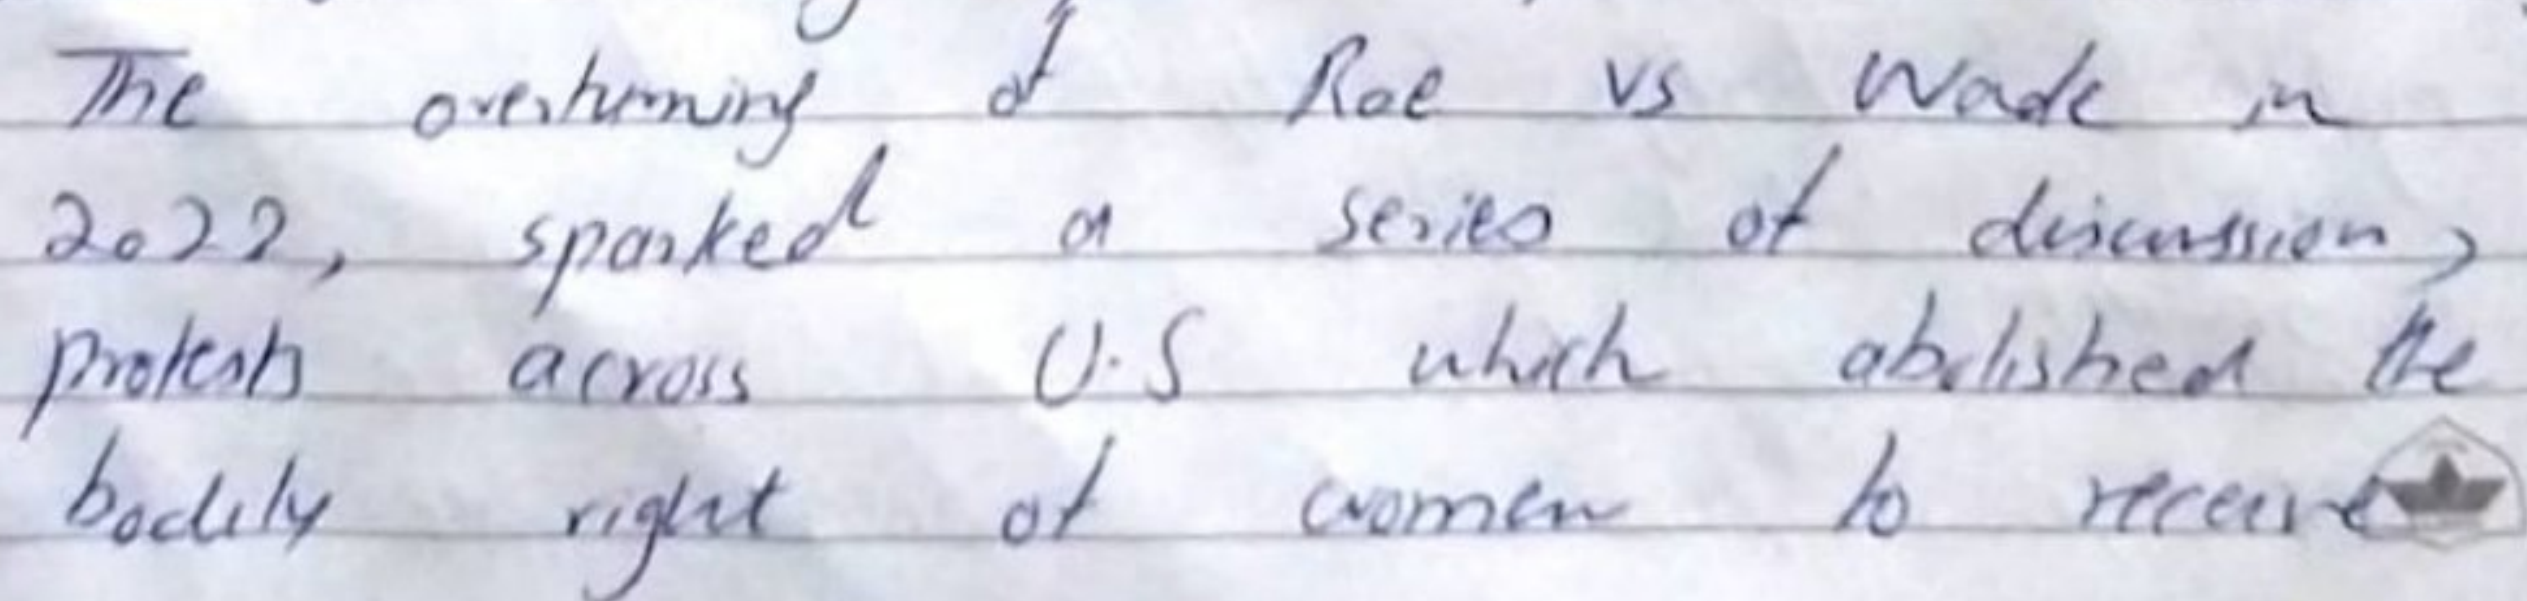 The overturning of Roe vs Wade in
2022, sparked a series of discussion,
protests across U.S which abolished the
bodily right of women to receive